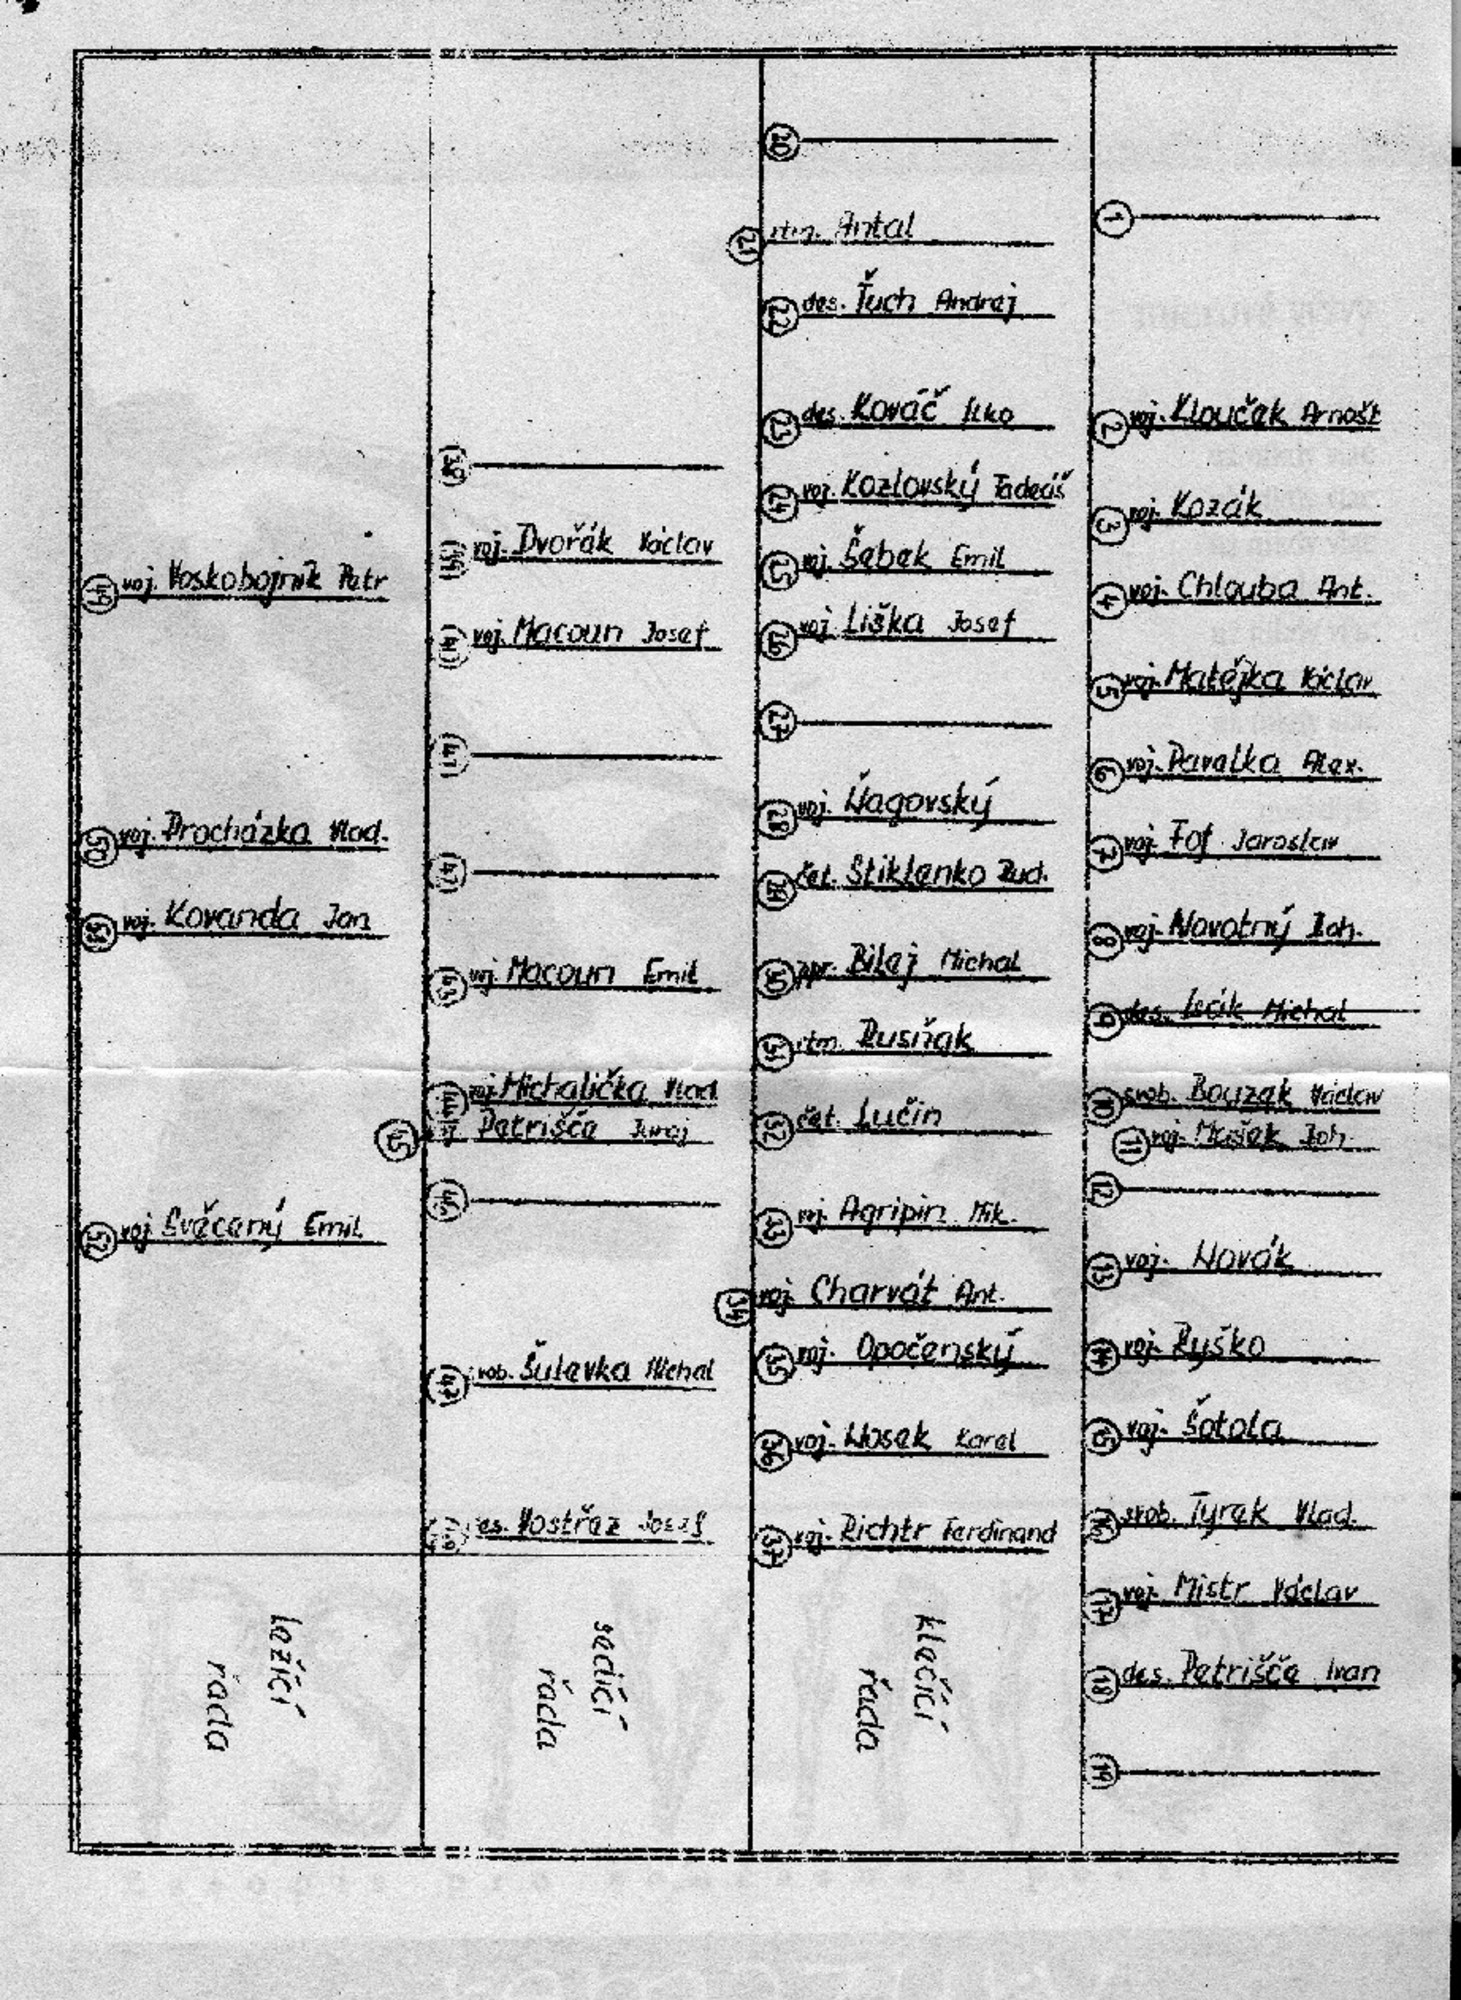 1
2 voj. Klouček Arnošt
3 voj. Kozák
4 voj. Chlouba Ant.
5 voj. Matějka Václav
6 voj. Pavalka Alex.
7 voj. Fof Jaroslav
8 voj. Novotný Boh.
9 des. Michal
10 svob. Václav
11 voj. Mašek Boh.
12
13 voj. Novák
14 voj. Ryško
15 voj. Šotola
16 svob. Tyrek Vlad.
17 voj. Mistr Václav
18 des. Petrišče Ivan
19
20
21 rtm. Antal
22 des. Ťuch Andrej
23 des. Kováč Ilko
24 voj. Kozlovský Tadeáš
25 voj. Šebek Emil
26 voj. Liška Josef
27
28 voj. Nagovský
29 čet. Stiklenko Rud.
30 ppr. Bilej Michal
31 rtm. Rusiňak
32 čet. Lučin
33 voj. Agripin Mik.
34 voj. Charvát Ant.
35 voj. Opočenský
36 voj. Nosek Karel
37 voj. Richtr Ferdinand
klečící
řada
38
39 voj. Dvořák Václav
40 voj. Macoun Josef
41
42
43 voj. Macoun Emil
44 voj. Michalička Vlad
45 voj. Petrišče Juraj
46
47 svob. Šulevka Michal
48 des. Vostřez Josef
sedící
řada
49 voj. Voskobojnik Petr
50 voj. Procházka Vlad.
voj. Kovanda Jan
52 voj. Svěcený Emil
ležící
řada